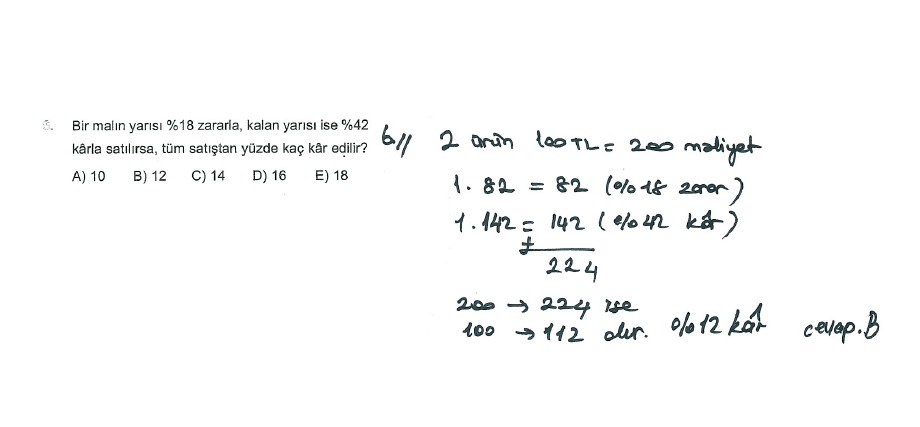 Bir malın yarısı %18 zararla, kalan yarısı ise %42
kârla satılırsa, tüm satıştan yüzde kaç kâr edilir?
A) 10 B) 12 C) 14 D) 16 E) 18
6// 2 ürün 100 TL = 200 maliyet
1. 82 = 82 (%18 zarar)
1. 142 = 142 (%42 kâr)
+
224
200 → 224 ise
100 → 112 dir. %12 kâr cevap. B